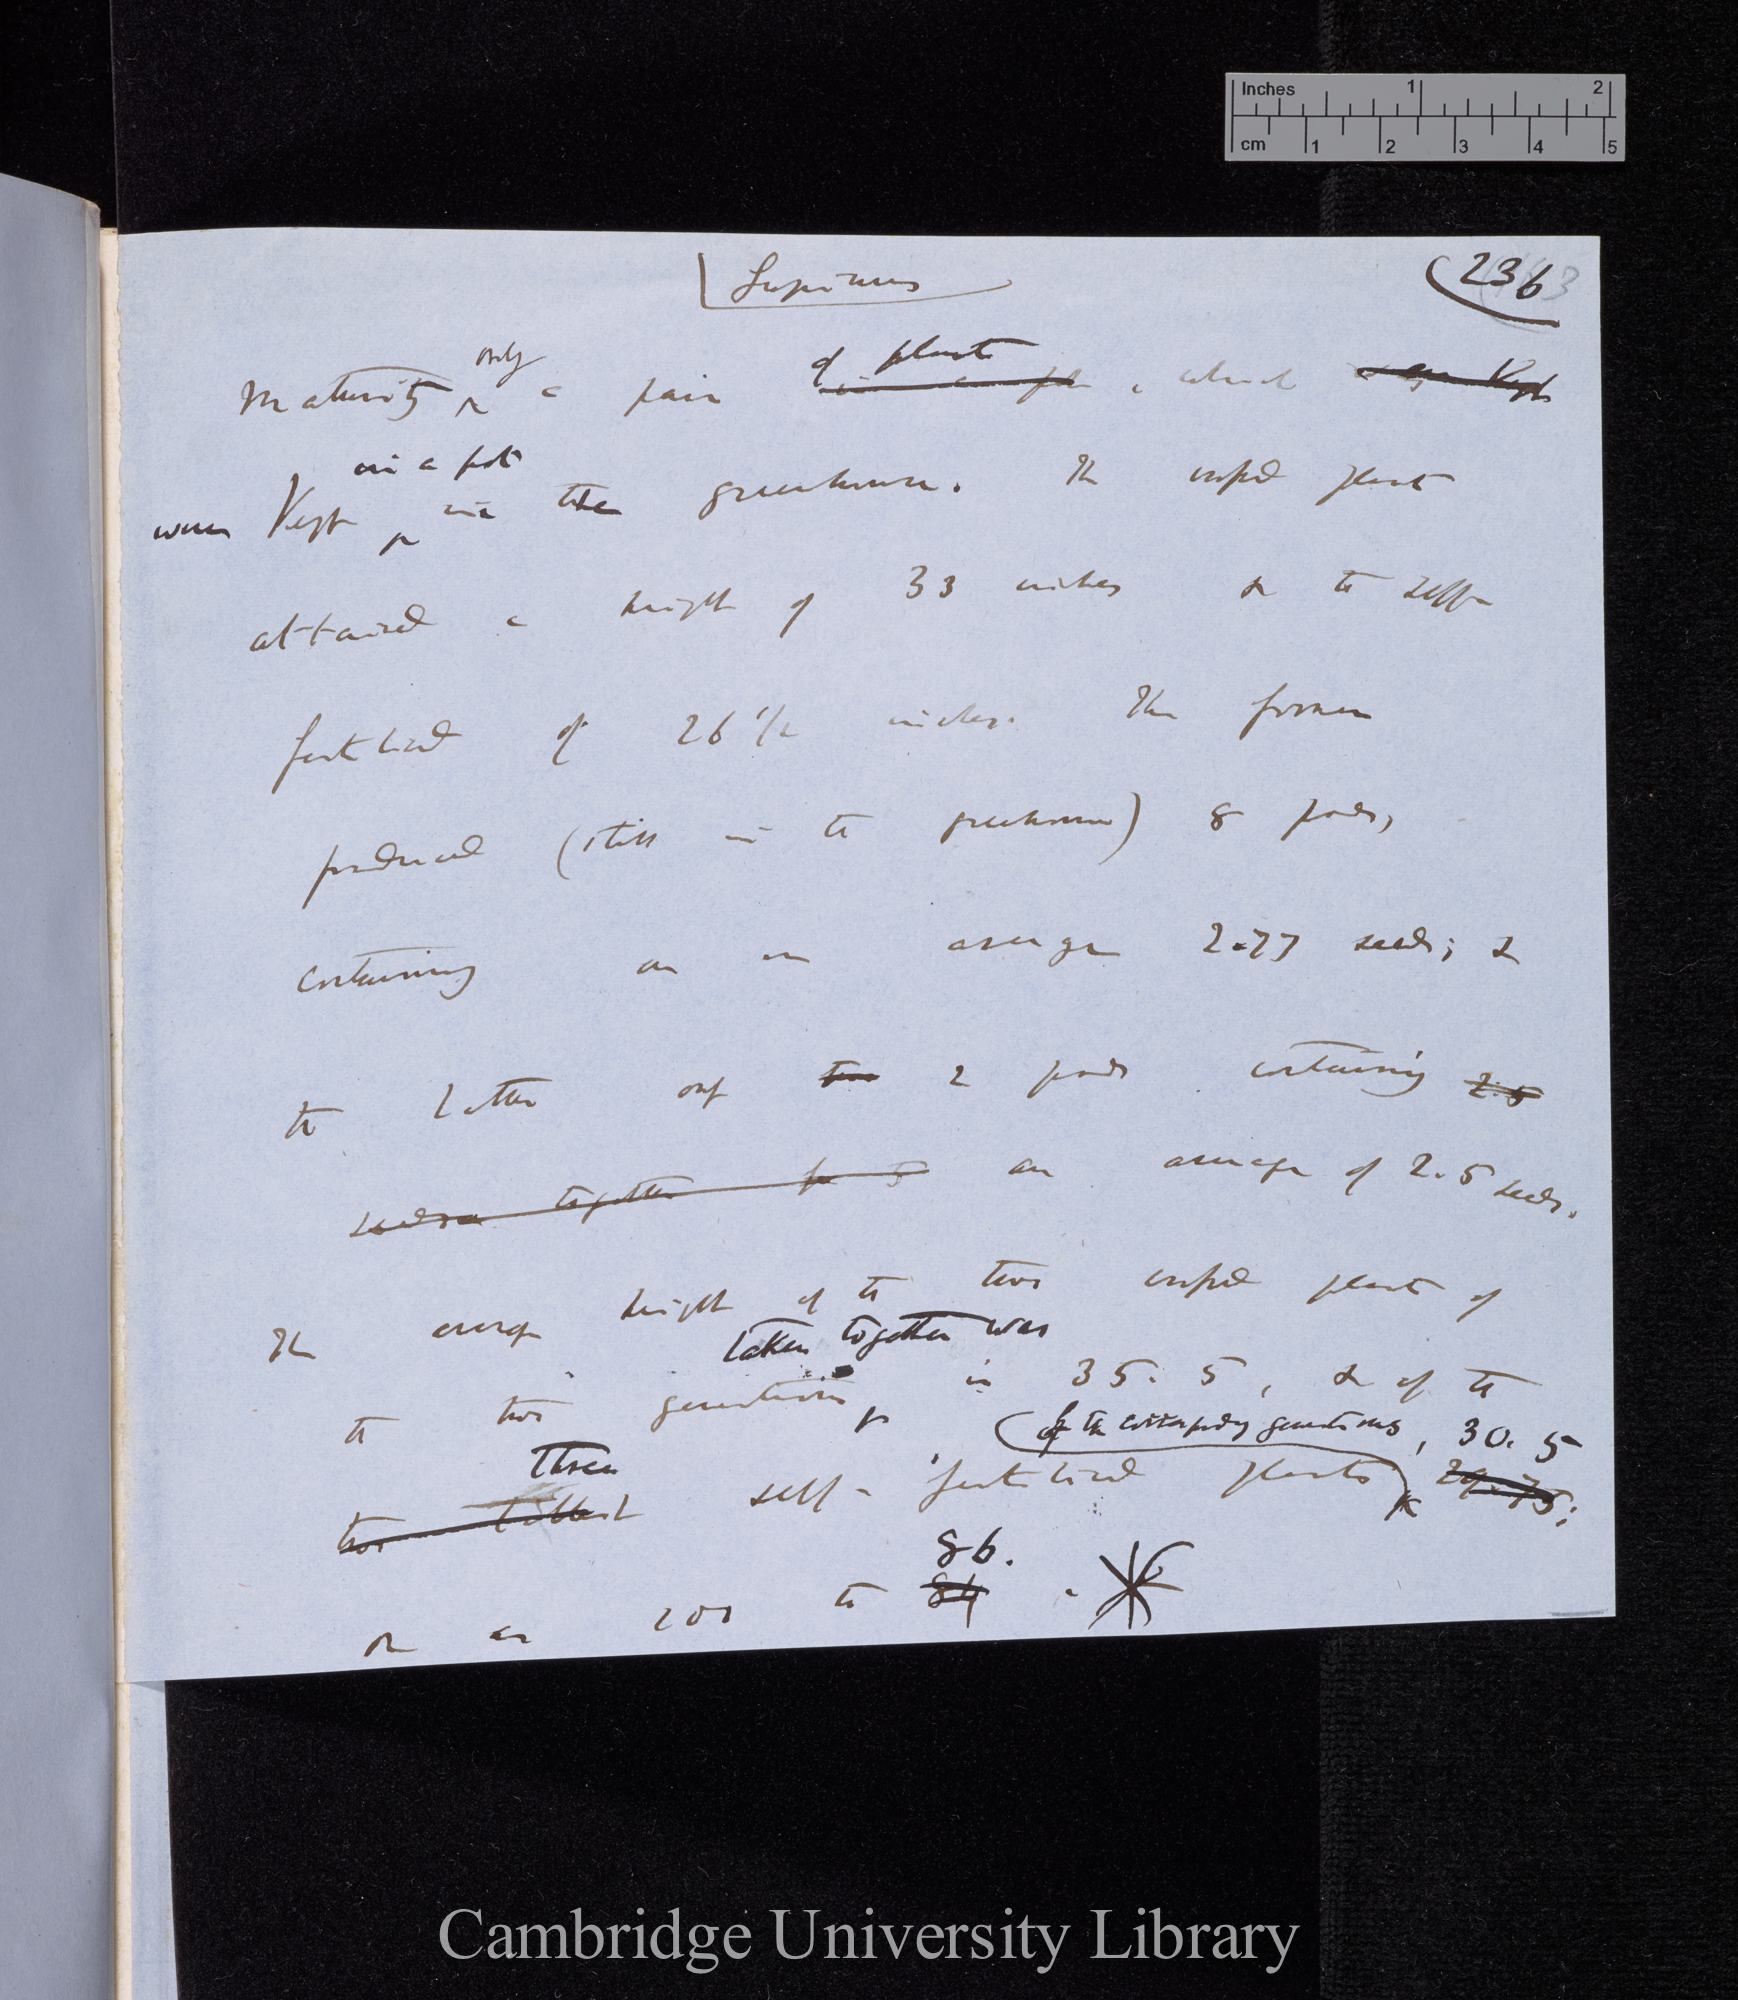 Inches 1 2
cm 1 2 3 4 5
Lupinus
236
only of plants
Maturity a pair , which
in a pot
were Kept in the greenhouse. The crossed plant
attained a height of 33 inches & the self-
fertilised of 26 1/2 inches. The former
produced (still in the greenhouse) 8 pods,
containing on an average 2.77 seeds; &
the latter only two 2 pods containing 2.5
seeds together for 5 an average of 2.5 seeds.
The average height of the two crossed plants of
taken together was
the two generations is 35.5, & of the
of the corresponding generations, 30.5
Three
two tallest self-fertilised plants 29.75;
86.
or as 100 to 84.
Cambridge University Library